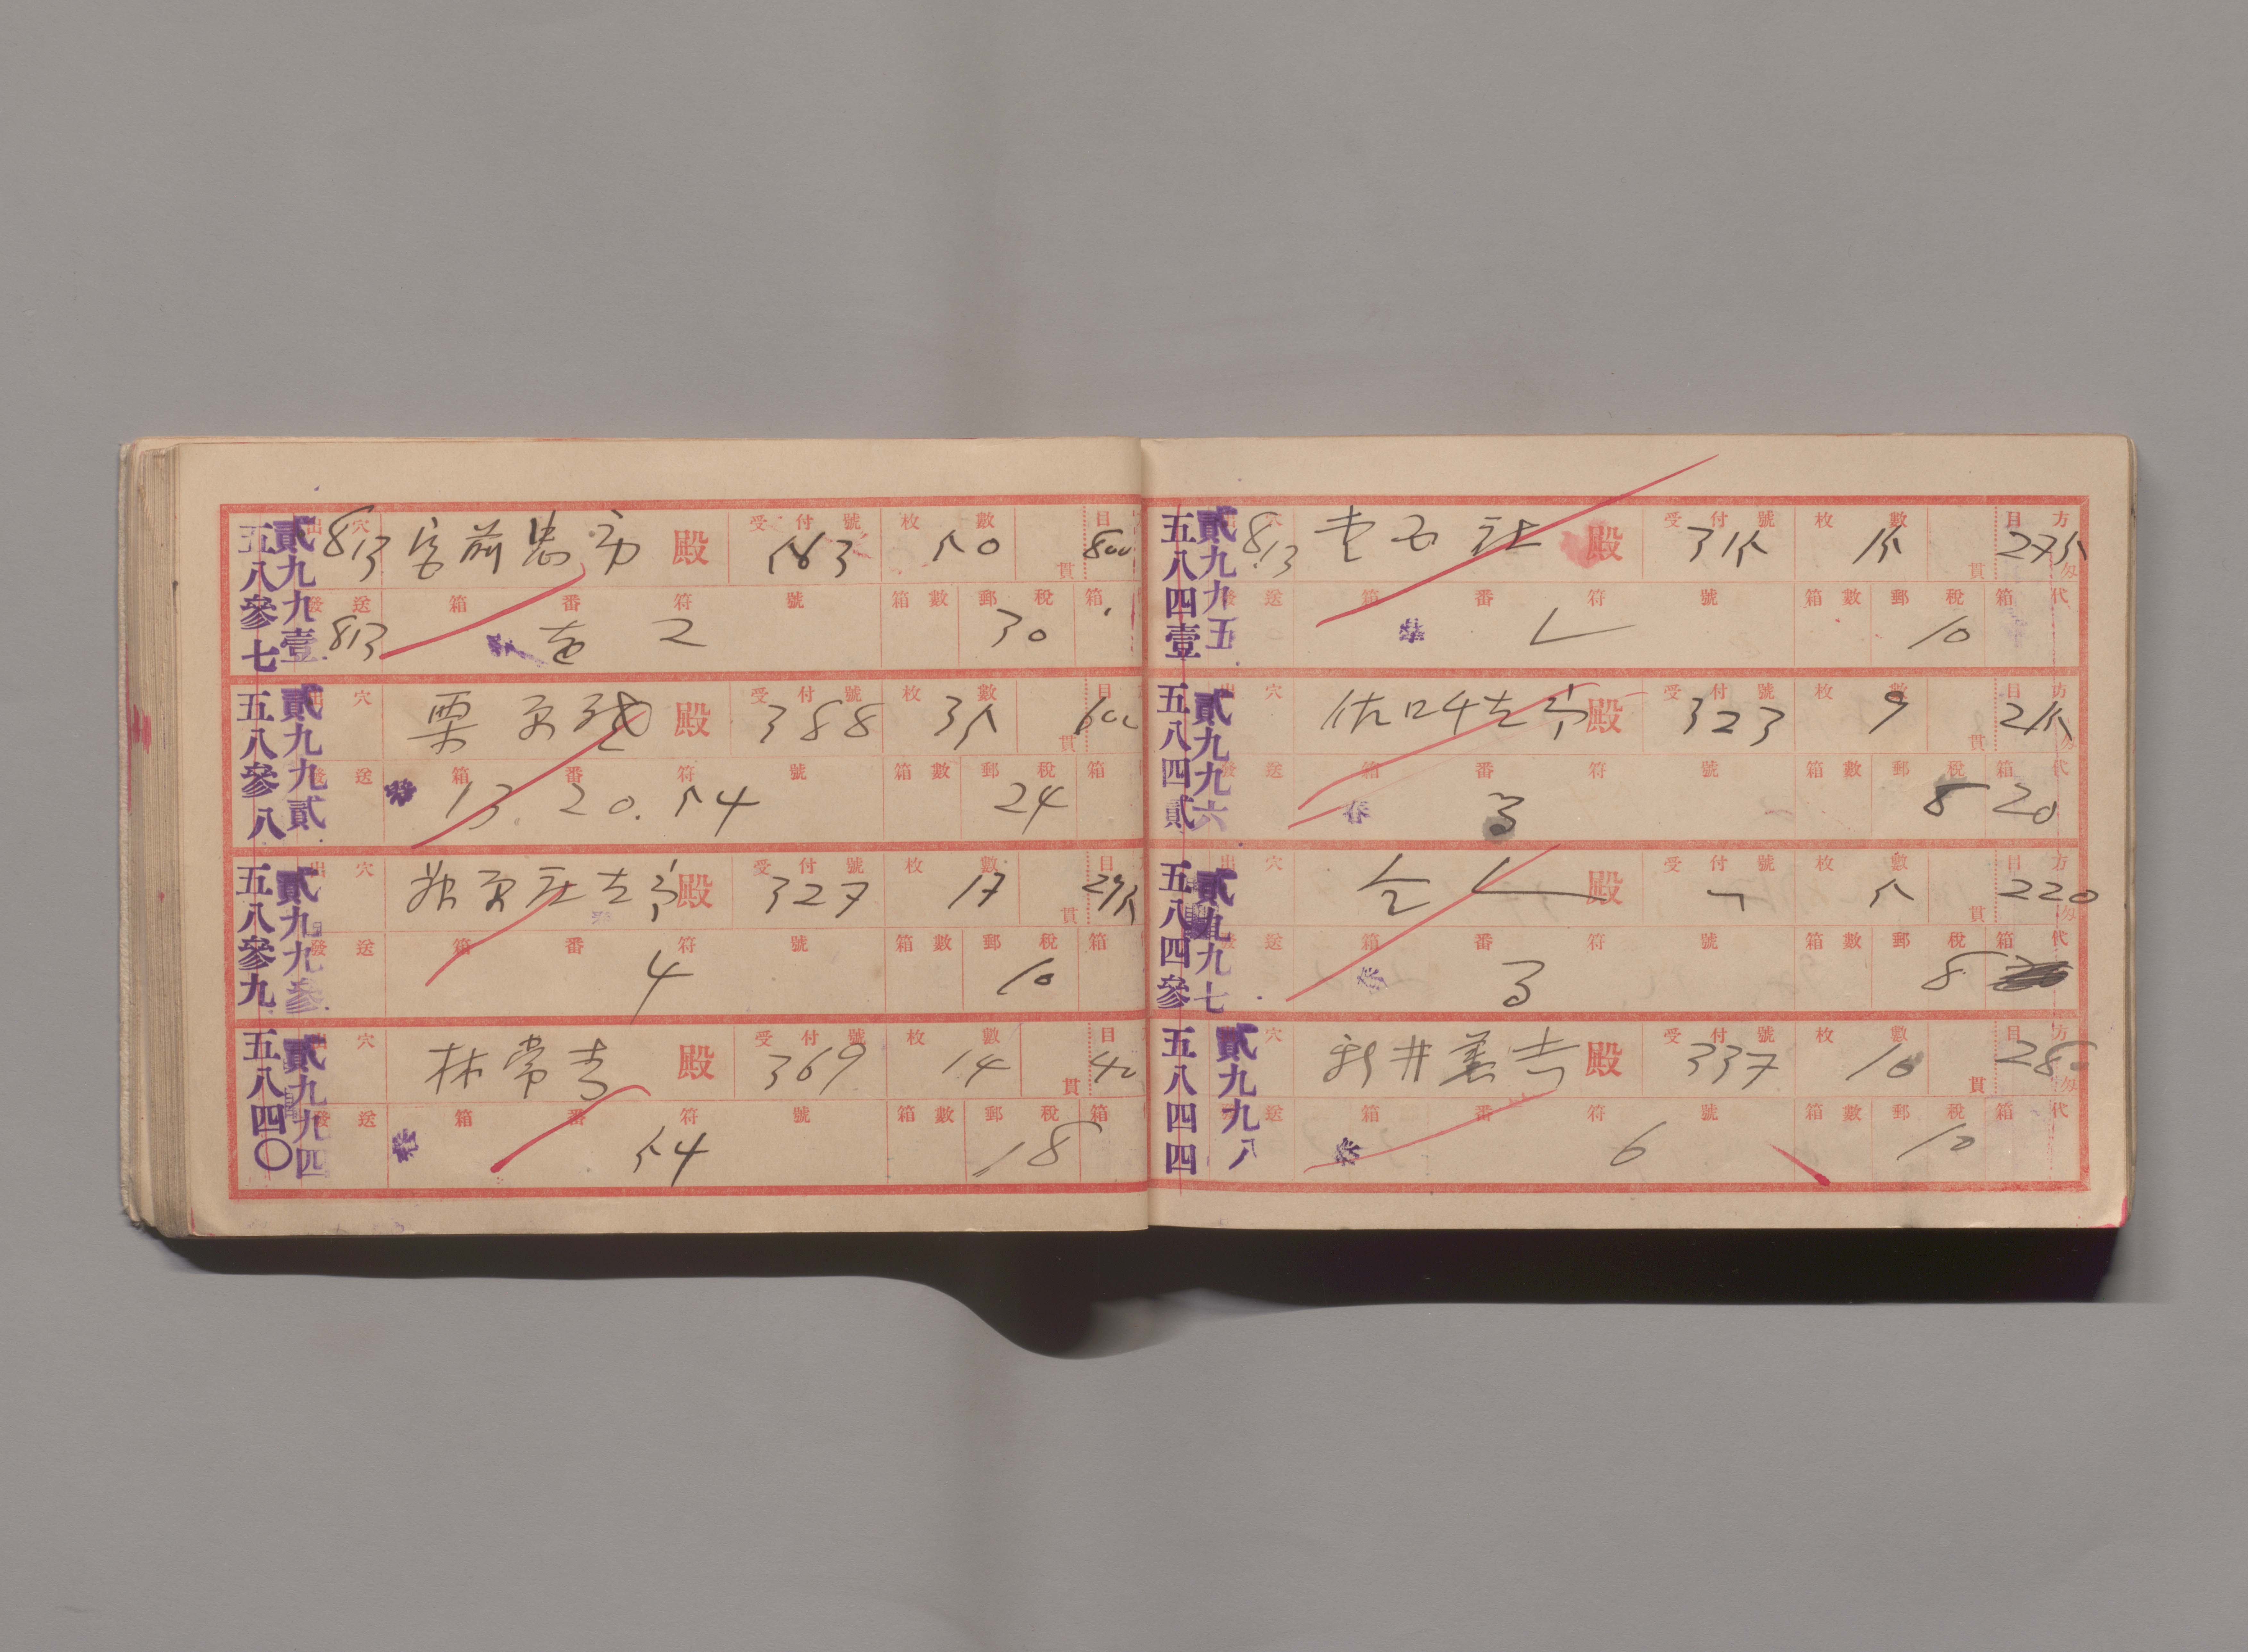 貳九九壹
五八參七
出穴 813 殿 受付號 枚數 50 貫 目 800
發送 813 箱番符號 2 箱數 郵稅 30 箱
貳九九貳
五八參八
出穴 栗 殿 受付號 388 枚數 35 貫 目 600
發送 箱番符號 13. 20. 54 箱數 郵稅 24 箱
貳九九參
五八參九
出穴 殿 受付號 327 枚數 17 貫 目 295
發送 箱番符號 4 箱數 郵稅 10 箱
貳九九四
五八四〇
出穴 林常吉 殿 受付號 369 枚數 14 貫 目
發送 箱番符號 54 箱數 郵稅 18 箱
貳九九五
五八四壹
出穴 813 殿 受付號 315 枚數 15 貫 目方 275 匁
發送 箱番符號 箱數 郵稅 10 箱代
貳九九六
五八四貳
出穴 殿 受付號 323 枚數 9 貫 目方 215 匁
發送 箱番符號 3 箱數 郵稅 8 箱代 20
貳九九七
五八四參
出穴 仝人 殿 受付號 枚數 5 貫 目方 220 匁
發送 箱番符號 3 箱數 郵稅 8 箱代
貳九九八
五八四四
出穴 新井善吉 殿 受付號 337 枚數 10 貫 目方 280 匁
發送 箱番符號 6 箱數 郵稅 10 箱代